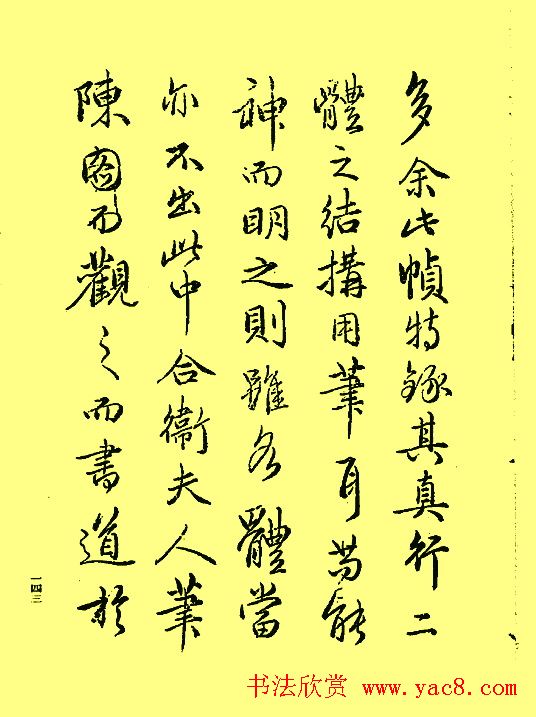 多余此幀特錄其真行二
體之結構用筆耳苟能
神而明之則雖各體當
亦不出此中合衞夫人筆
陳圖而觀之而書道於
一四三
书法欣赏 www.yac8.com